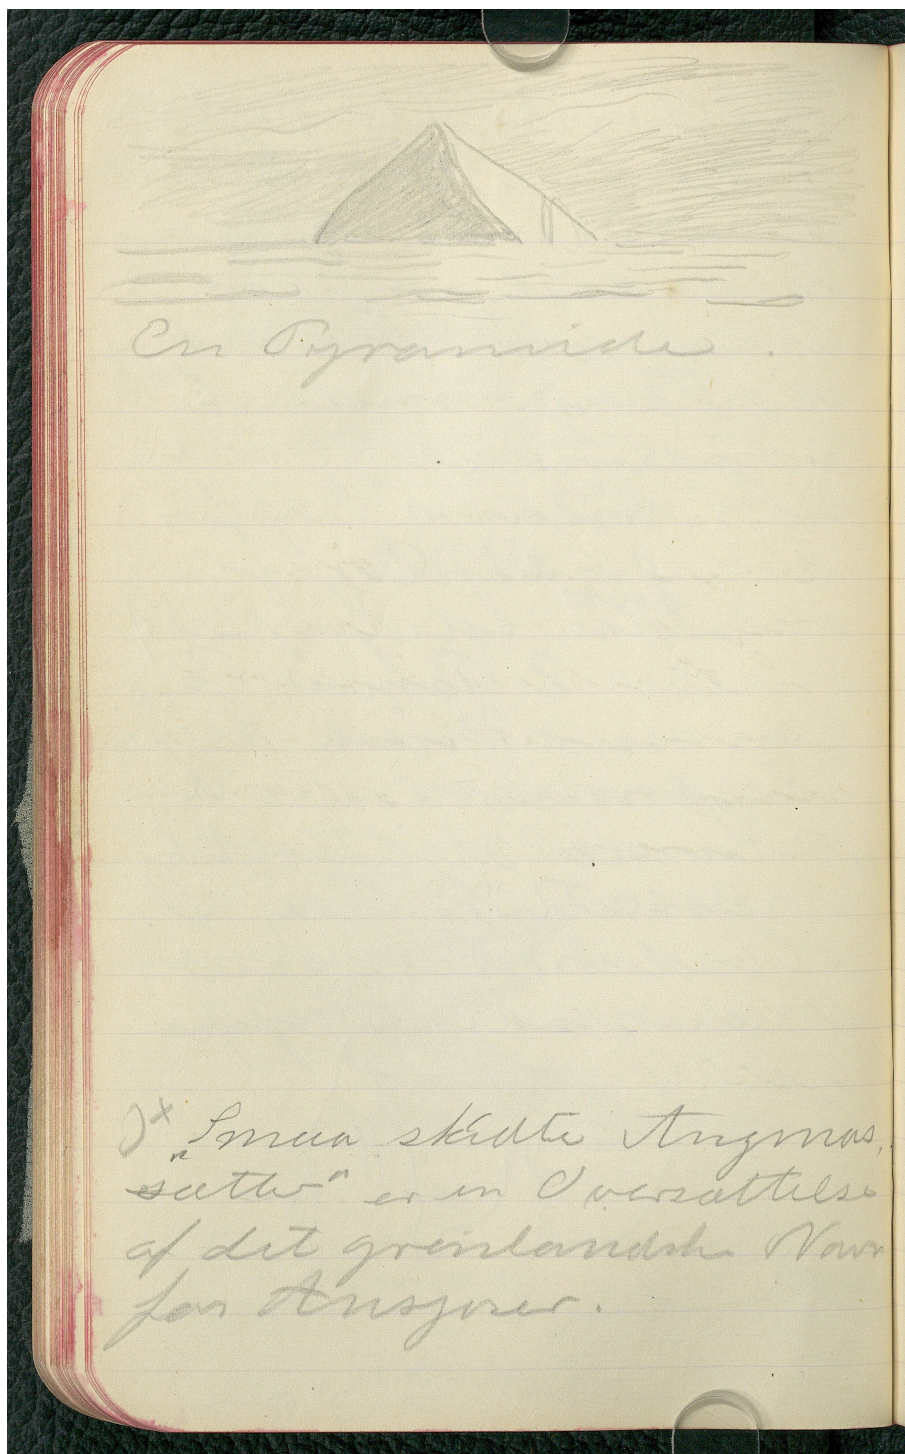 En Pyramide.
)x „Smaa skidte Angmas,
sætter" er en Oversættelse
af det grønlandske Navn
for Ansjoser.